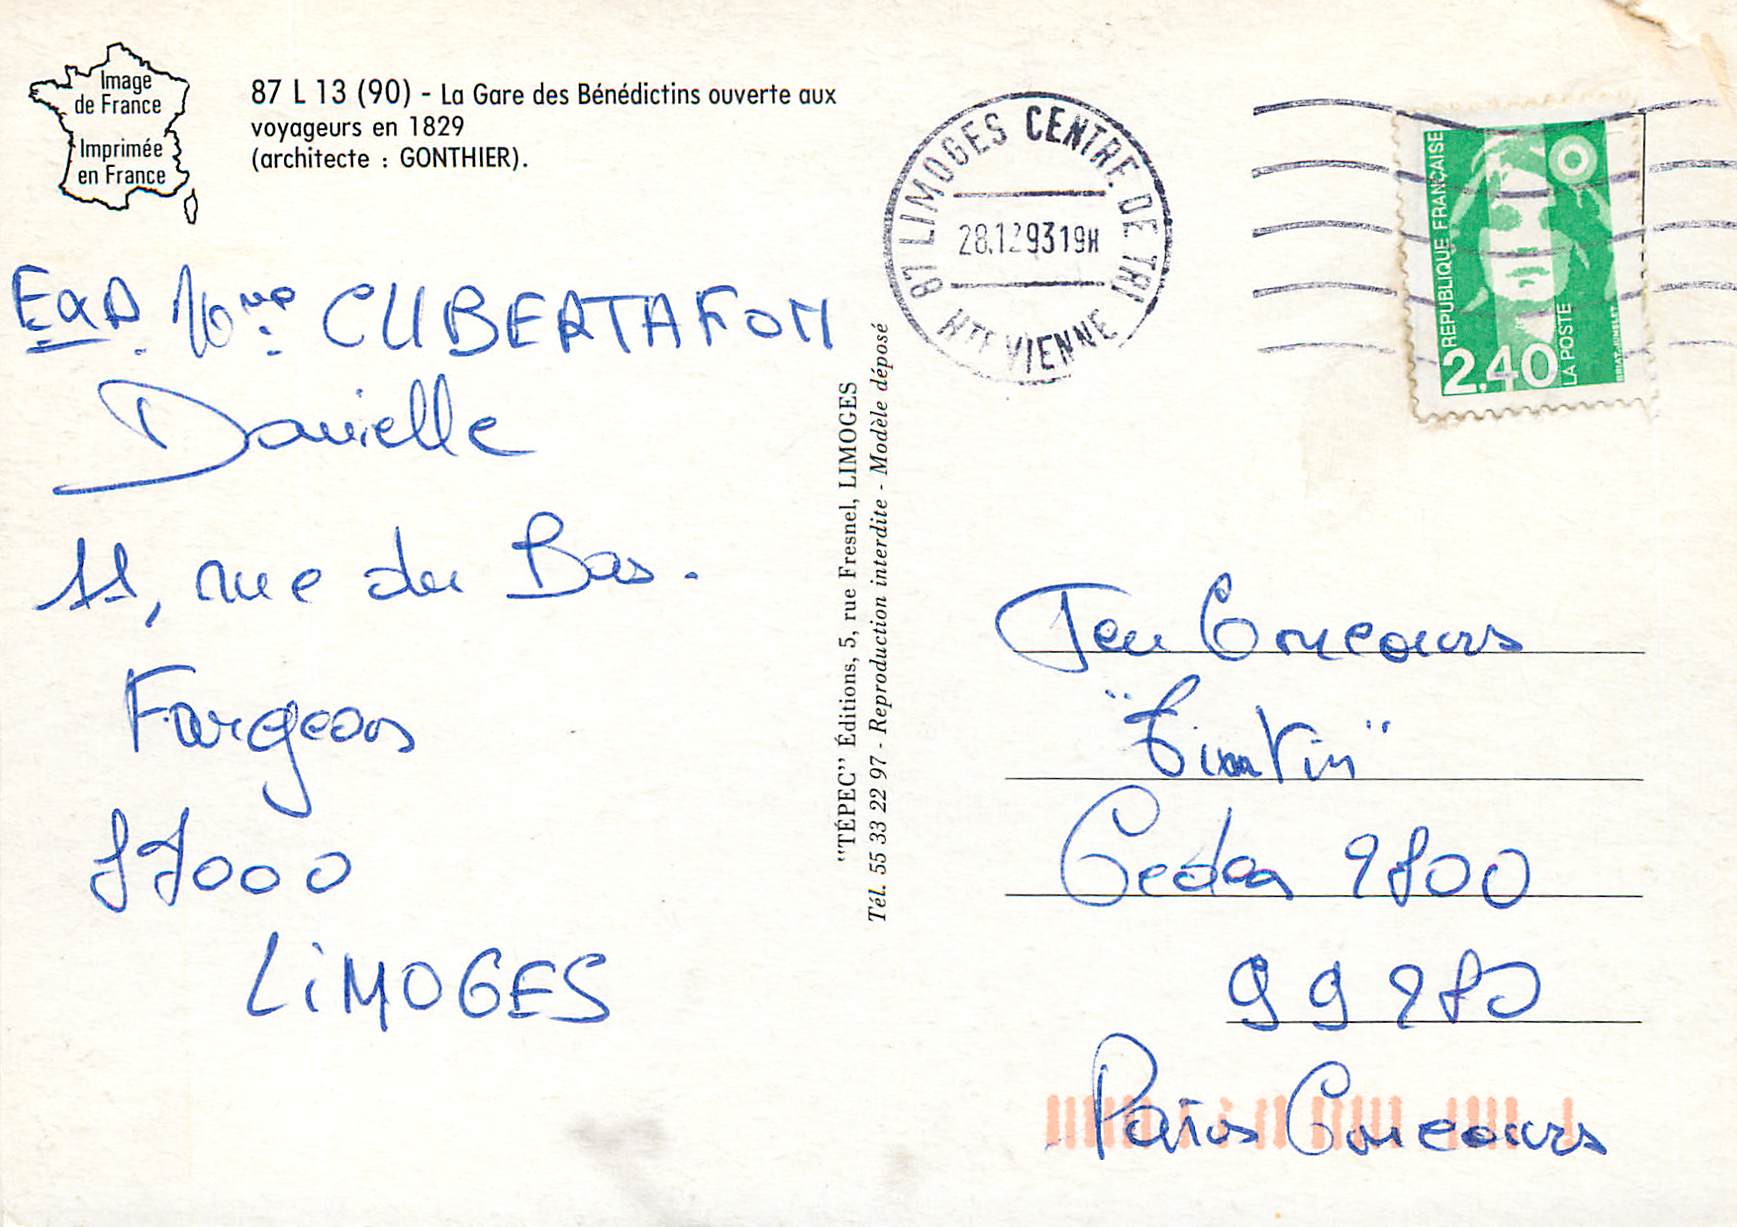 Image
de France
Imprimée
en France
87 L 13 (90) - La Gare des Bénédictins ouverte aux
voyageurs en 1829
(architecte : GONTHIER).
Exp. Mme CUBERTAFON
Danielle
11, rue du Bas.
Fargeas
87000
LiMOGES
"TÉPEC" Éditions, 5, rue Fresnel, LIMOGES
Tél. 55 33 22 97 - Reproduction interdite - Modèle déposé
87 LIMOGES CENTRE DE TRI
28.12 93 19H
HTE VIENNE
REPUBLIQUE FRANÇAISE
2.40
LA POSTE
BRIAT-JUMELET
Jeu Concours
"Tintin"
Cedex 2800
99280
Paris Concours